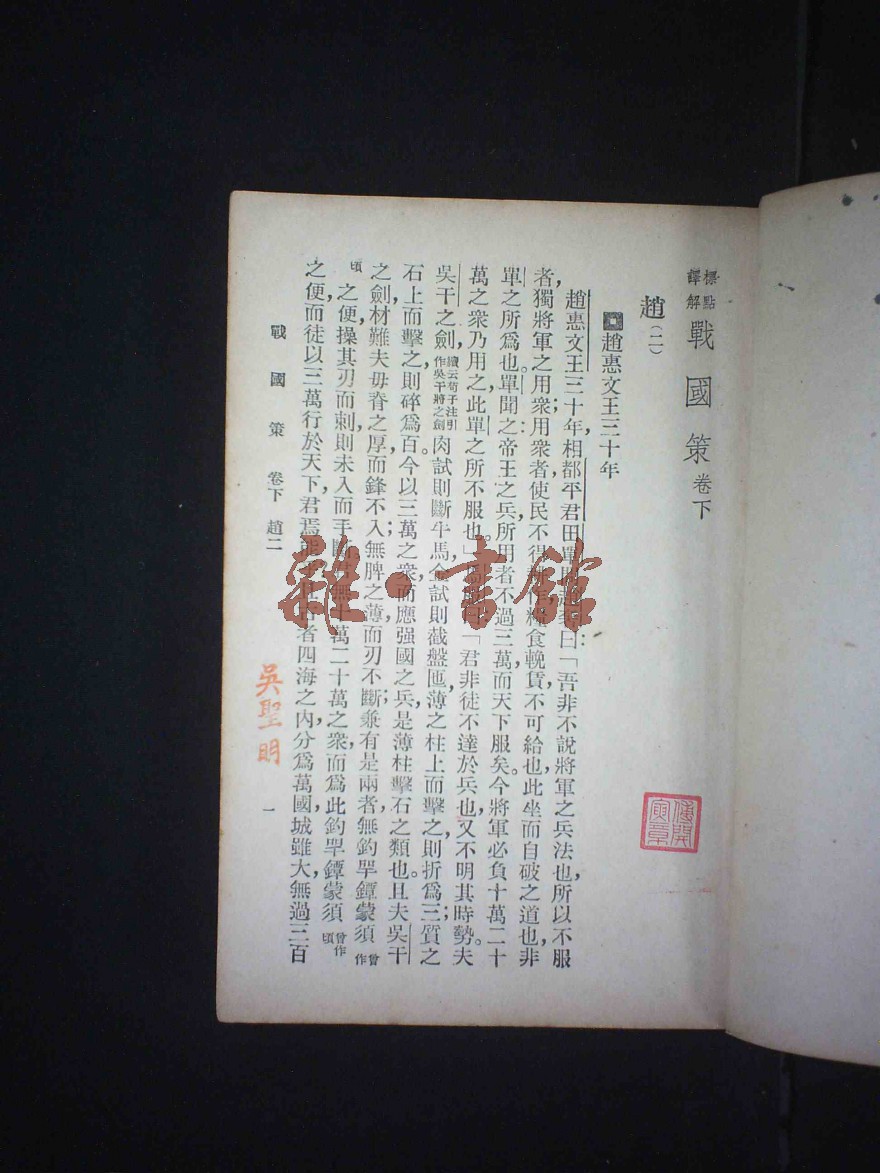 標點
譯解
戰國策 卷下
趙(二)
趙惠文王三十年
趙惠文王三十年，相都平君田單曰：「吾非不說將軍之兵法也，所以不服
者，獨將軍之用衆；用衆者，使民不得糧食輓賃不可給也，此坐而自破之道也，非
單之所爲也。單聞之：帝王之兵，所用者不過三萬，而天下服矣。今將軍必負十萬二十
萬之衆乃用之，此單之所不服也」「君非徒不達於兵也，又不明其時勢。夫
吳干之劍，續云荀子注引作吳干將之劍肉試則斷牛馬，金試則截盤匜；薄之柱上而擊之，則折爲三；質之
石上而擊之，則碎爲百。今以三萬之衆而應强國之兵，是薄柱擊石之類也。且夫吳干
之劍材難，夫毋脊之厚而鋒不入，無脾之薄而刃不斷；兼有是兩者，無釣罕鐔蒙須曾作
頃之便，操其刃而刺，則未入而手斷十萬二十萬之衆，而爲此釣罕鐔蒙須曾作頃
之便，而徒以三萬行於天下，君焉者，四海之內，分爲萬國，城雖大，無過三百
戰國策 卷下 趙二
一
吳聖明
雜·書館